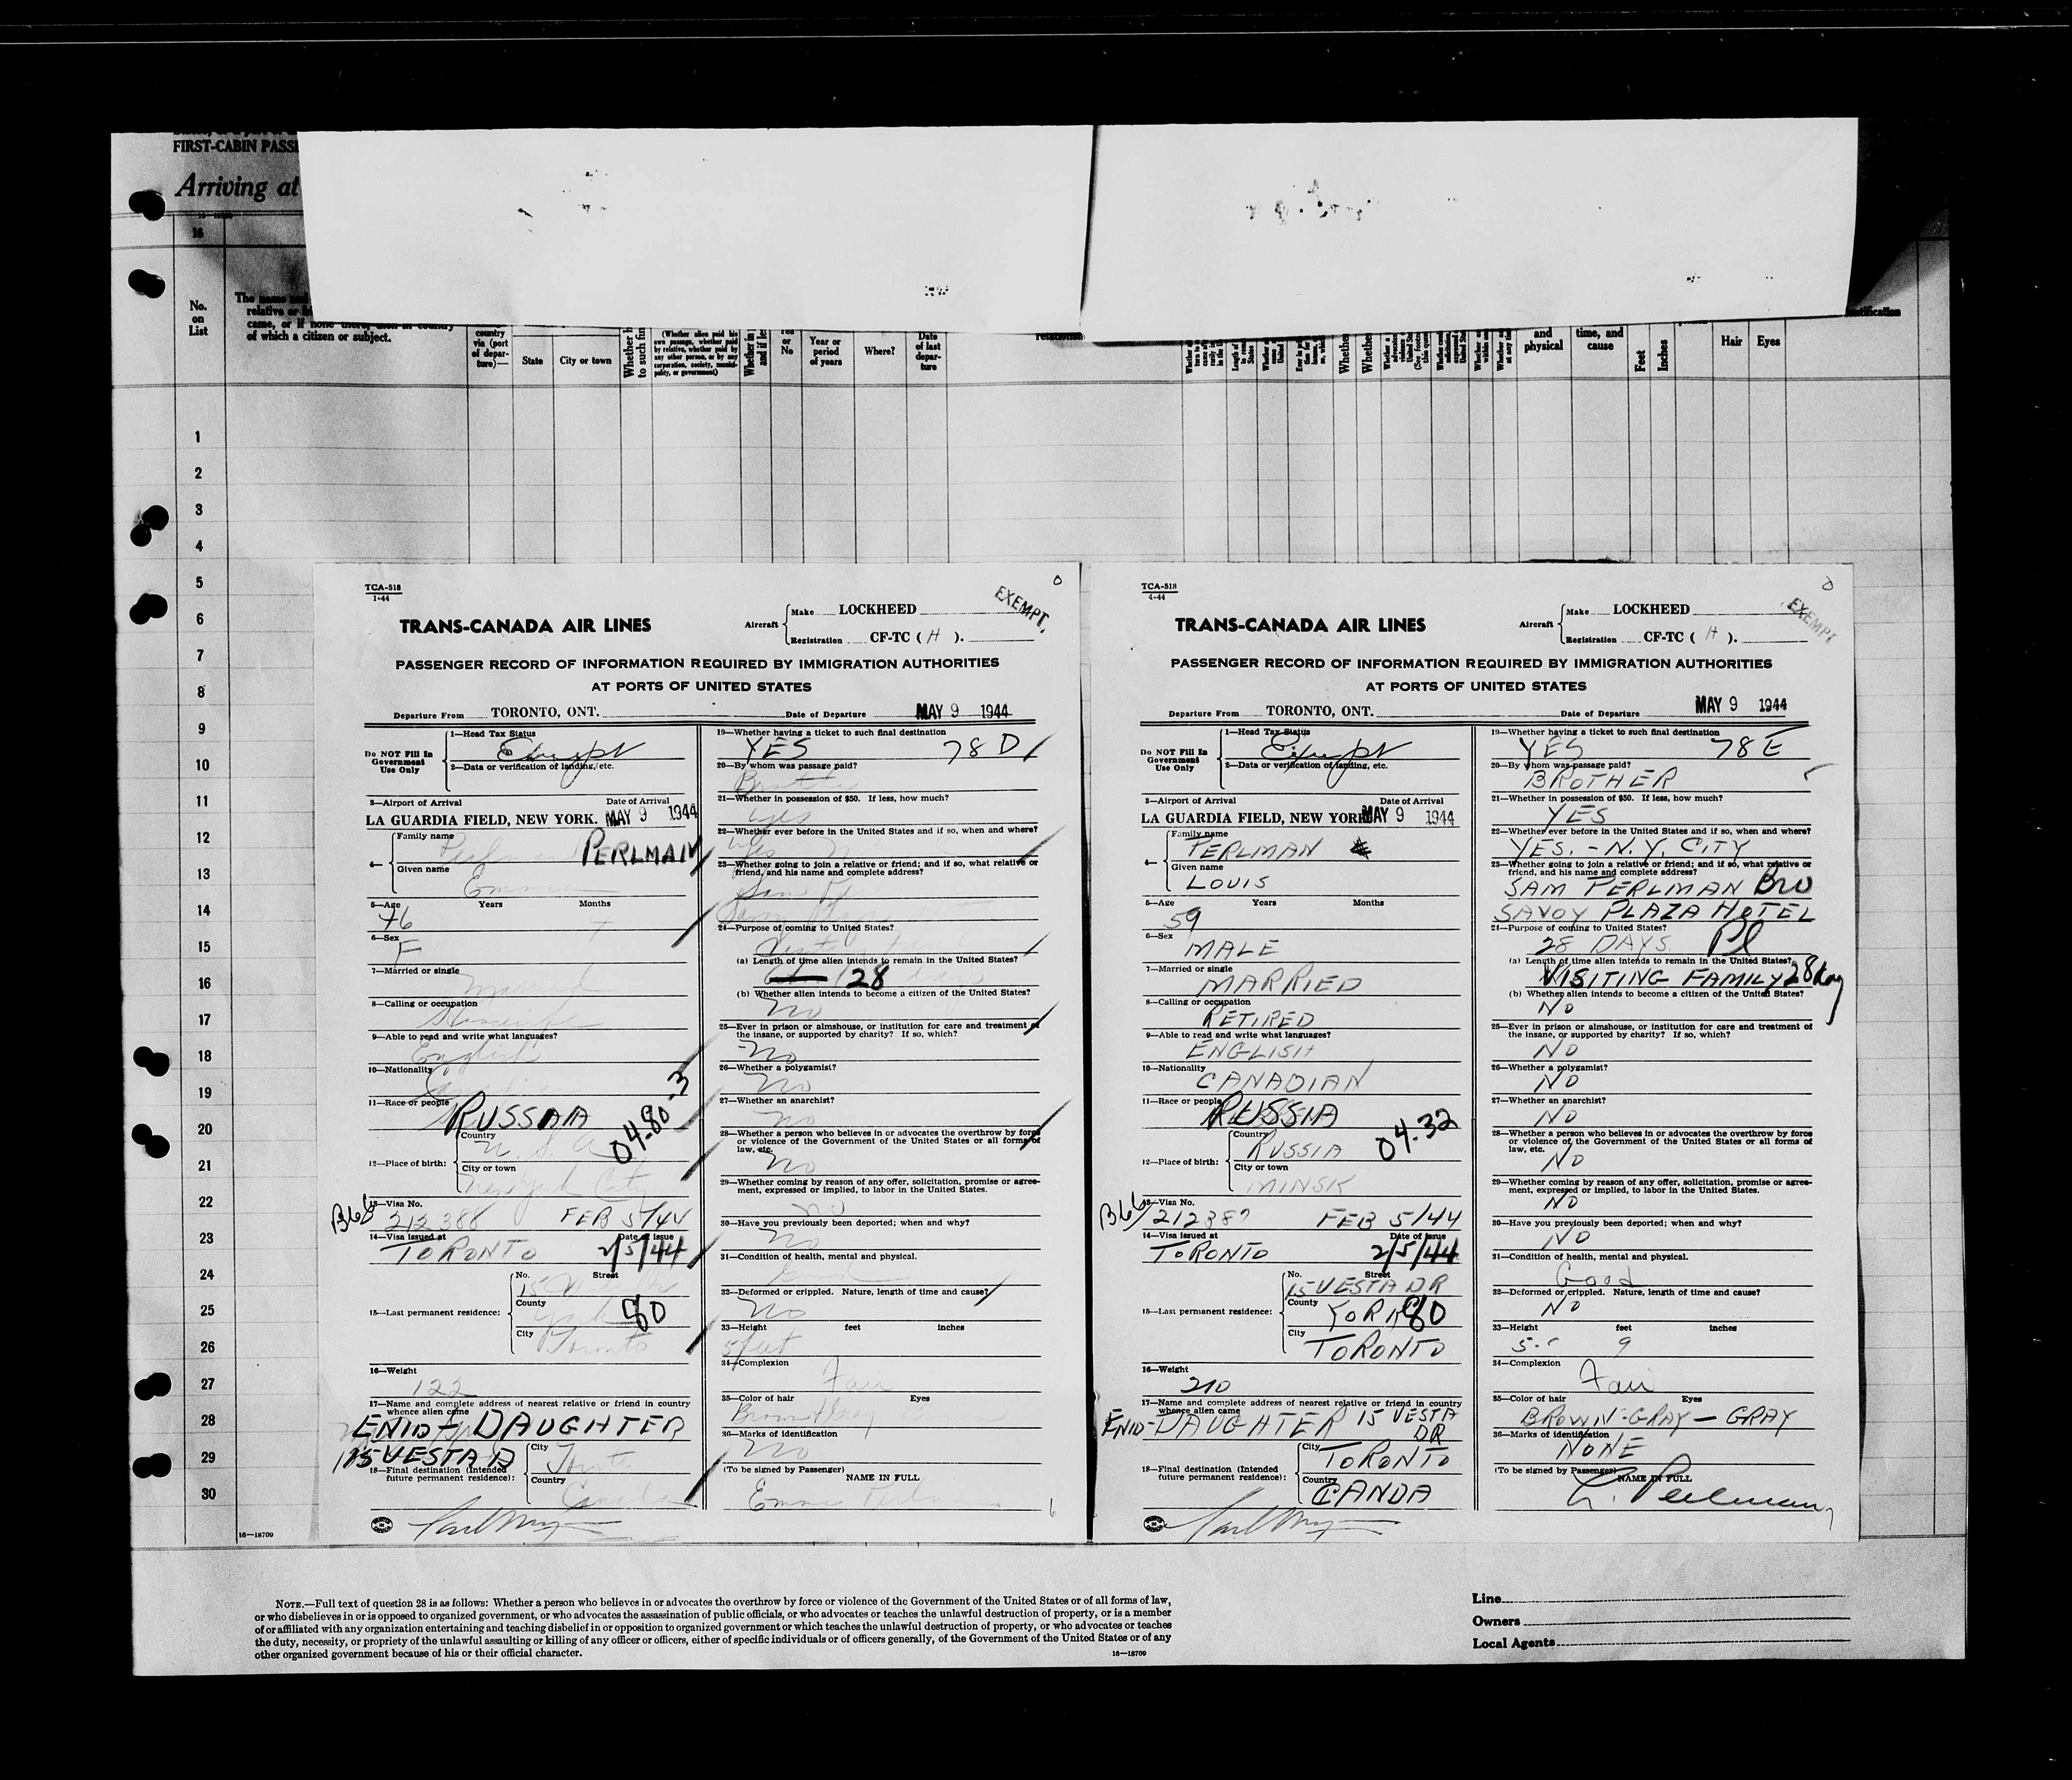 FIRST-CABIN PASSE
Arriving at
16
No.
on
List
The name and
relative or
came, or if none there, then in country
of which a citizen or subject.
country
via (port
of depar-
ture)—
State
City or town
Whether
to such fin
(Whether alien paid his
own passage, whether paid
by relative, whether paid by
any other person, or by any
corporation, society, munici-
pality, or government)
Whether in
and if le
Yes
or
No
Year or
period
of years
Where?
Date
of last
depar-
ture
Whether
Whether
and
physical
time, and
cause
Feet
Inches
Hair
Eyes
1
2
3
4
5
6
7
8
9
10
11
12
13
14
15
16
17
18
19
20
21
22
23
24
25
26
27
28
29
30
16—18709
TCA-518
1-44
TRANS-CANADA AIR LINES
Aircraft
Make LOCKHEED
Registration CF-TC ( H ).
EXEMPT.
PASSENGER RECORD OF INFORMATION REQUIRED BY IMMIGRATION AUTHORITIES
AT PORTS OF UNITED STATES
Departure From TORONTO, ONT. Date of Departure MAY 9 1944
Do NOT Fill In
Government
Use Only
1—Head Tax Status
Exempt
2—Data or verification of landing, etc.
3—Airport of Arrival Date of Arrival
LA GUARDIA FIELD, NEW YORK. MAY 9 1944
4—
Family name
PERLMAN
Given name
Emma
5—Age Years Months
76
6—Sex
F
7—Married or single
Married
8—Calling or occupation
Housewife
9—Able to read and write what languages?
English
10—Nationality
Canadian
11—Race or people
RUSSIA
04-80-3
12—Place of birth:
Country
U. S. A.
City or town
New York City
B66
13—Visa No.
212388 FEB 5/44
14—Visa issued at Date of issue
TORONTO 2/5/44
15—Last permanent residence:
No. Street
15
County
York 80
City
Toronto
16—Weight
122
17—Name and complete address of nearest relative or friend in country
whence alien came
ENID DAUGHTER
15 VESTA D
18—Final destination (Intended
future permanent residence):
City
Toronto
Country
Canada
19—Whether having a ticket to such final destination
YES 78 D
20—By whom was passage paid?
Brother
21—Whether in possession of $50. If less, how much?
yes
22—Whether ever before in the United States and if so, when and where?
Yes
23—Whether going to join a relative or friend; and if so, what relative or
friend, and his name and complete address?
Sam
24—Purpose of coming to United States?
(a) Length of time alien intends to remain in the United States?
28
(b) Whether alien intends to become a citizen of the United States?
No
25—Ever in prison or almshouse, or institution for care and treatment of
the insane, or supported by charity? If so, which?
No
26—Whether a polygamist?
No
27—Whether an anarchist?
No
28—Whether a person who believes in or advocates the overthrow by force
or violence of the Government of the United States or all forms of
law, etc.
No
29—Whether coming by reason of any offer, solicitation, promise or agree-
ment, expressed or implied, to labor in the United States.
No
30—Have you previously been deported; when and why?
No
31—Condition of health, mental and physical.
Good
32—Deformed or crippled. Nature, length of time and cause?
No
33—Height feet inches
5 feet
34—Complexion
Fair
35—Color of hair Eyes
Brown & Gray
36—Marks of identification
No
(To be signed by Passenger) NAME IN FULL
Emma Perlman
TCA-518
4-44
TRANS-CANADA AIR LINES
Aircraft
Make LOCKHEED
Registration CF-TC ( H ).
EXEMPT
PASSENGER RECORD OF INFORMATION REQUIRED BY IMMIGRATION AUTHORITIES
AT PORTS OF UNITED STATES
Departure From TORONTO, ONT. Date of Departure MAY 9 1944
Do NOT Fill In
Government
Use Only
1—Head Tax Status
Exempt
2—Data or verification of landing, etc.
3—Airport of Arrival Date of Arrival
LA GUARDIA FIELD, NEW YORK MAY 9 1944
4—
Family name
PERLMAN
Given name
LOUIS
5—Age Years Months
59
6—Sex
MALE
7—Married or single
MARRIED
8—Calling or occupation
RETIRED
9—Able to read and write what languages?
ENGLISH
10—Nationality
CANADIAN
11—Race or people
RUSSIA
04-32
12—Place of birth:
Country
RUSSIA
City or town
MINSK
B66
13—Visa No.
212387 FEB 5/44
14—Visa issued at Date of issue
TORONTO 2/5/44
15—Last permanent residence:
No. Street
15 VESTA DR
County
YORK 80
City
TORONTO
16—Weight
210
17—Name and complete address of nearest relative or friend in country
whence alien came
ENID-DAUGHTER 15 VESTA
DR
18—Final destination (Intended
future permanent residence):
City
TORONTO
Country
CANDA
19—Whether having a ticket to such final destination
YES 78 E
20—By whom was passage paid?
BROTHER
21—Whether in possession of $50. If less, how much?
YES
22—Whether ever before in the United States and if so, when and where?
YES. - N.Y. CITY
23—Whether going to join a relative or friend; and if so, what relative or
friend, and his name and complete address?
SAM PERLMAN Bro
SAVOY PLAZA HOTEL
24—Purpose of coming to United States?
28 DAYS Pl
(a) Length of time alien intends to remain in the United States?
VISITING FAMILY 28 day
(b) Whether alien intends to become a citizen of the United States?
NO
25—Ever in prison or almshouse, or institution for care and treatment of
the insane, or supported by charity? If so, which?
NO
26—Whether a polygamist?
NO
27—Whether an anarchist?
NO
28—Whether a person who believes in or advocates the overthrow by force
or violence of the Government of the United States or all forms of
law, etc.
NO
29—Whether coming by reason of any offer, solicitation, promise or agree-
ment, expressed or implied, to labor in the United States.
NO
30—Have you previously been deported; when and why?
NO
31—Condition of health, mental and physical.
Good
32—Deformed or crippled. Nature, length of time and cause?
NO
33—Height feet inches
5 9
34—Complexion
Fair
35—Color of hair Eyes
BROWN-GRAY — GRAY
36—Marks of identification
NONE
(To be signed by Passenger) NAME IN FULL
L. Perlman
NOTE.—Full text of question 28 is as follows: Whether a person who believes in or advocates the overthrow by force or violence of the Government of the United States or of all forms of law,
or who disbelieves in or is opposed to organized government, or who advocates the assassination of public officials, or who advocates or teaches the unlawful destruction of property, or is a member
of or affiliated with any organization entertaining and teaching disbelief in or opposition to organized government or which teaches the unlawful destruction of property, or who advocates or teaches
the duty, necessity, or propriety of the unlawful assaulting or killing of any officer or officers, either of specific individuals or of officers generally, of the Government of the United States or of any
other organized government because of his or their official character.
16—18709
Line
Owners
Local Agents